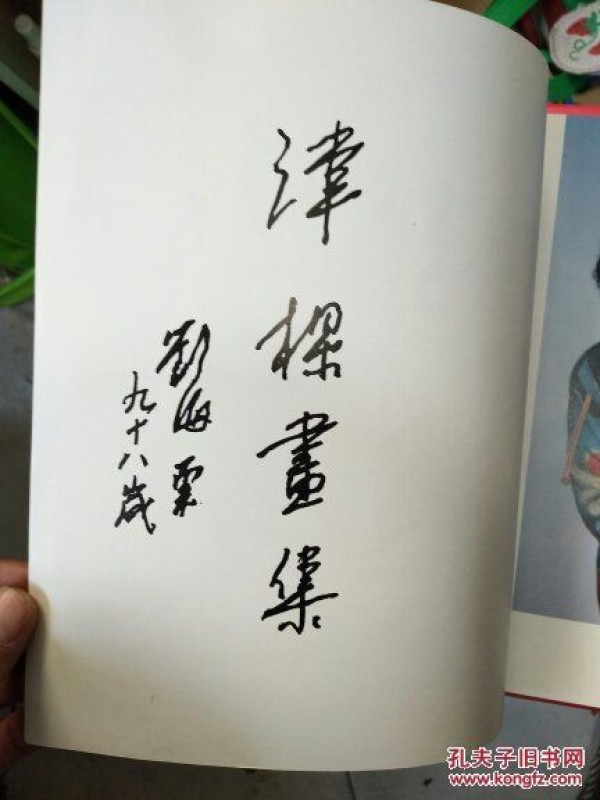 樑畫集
劉海粟
九十八歲
孔夫子旧书网
www.kongfz.com